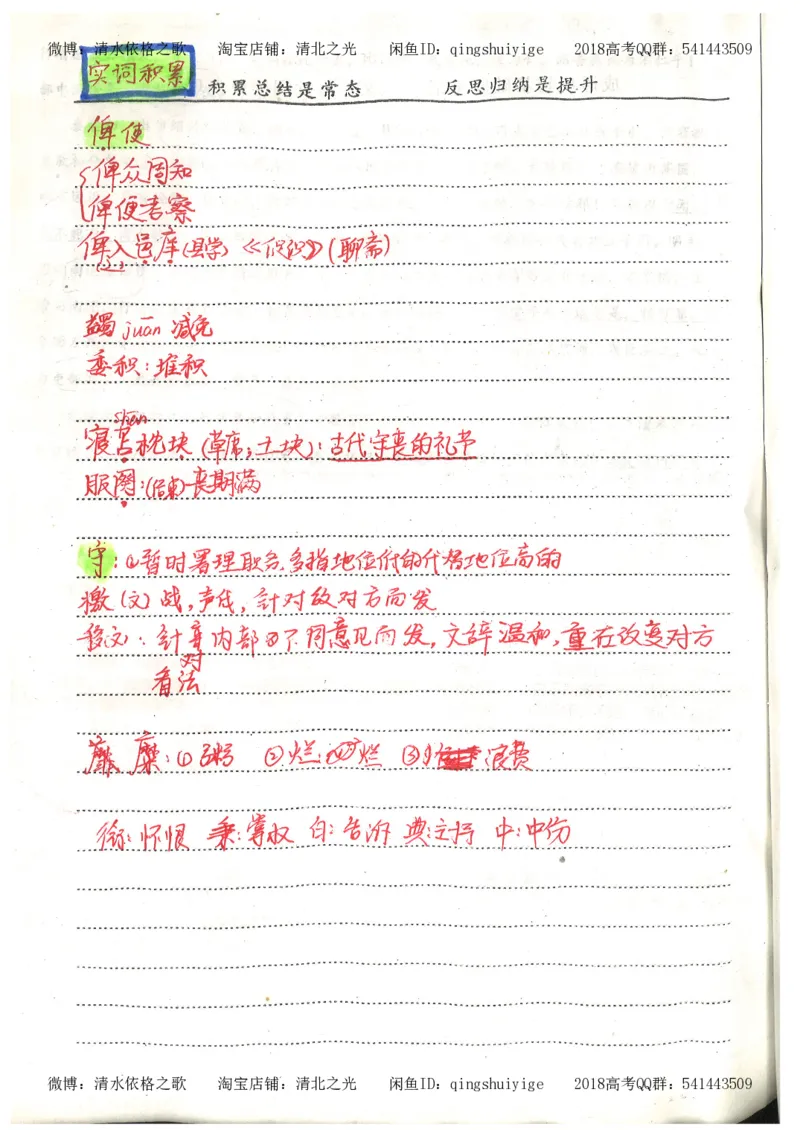 微博：清水依格之歌 淘宝店铺：清北之光 闲鱼ID：qingshuiyige 2018高考QQ群：541443509
实词积累 积累总结是常态 反思归纳是提升
俾 使
俾众周知
俾便考察
俾入邑庠(县学) 《促织》(聊斋)
蠲 juān 减免
委积：堆积
shān
寝苫枕块 (草席；土块)：古代守丧的礼节
服阕：(后来)丧期满
守：①暂时署理职务.多指地位低的代替地位高的
檄(文) 战,声伐,针对敌对方而发
移文：针对内部的不同意见而发,文辞温和,重在改变对方
看法
糜：①粥 ②烂 烂 ③ 浪费
衔：怀恨 秉：掌权 白：告诉 典：主持 中：中伤
微博：清水依格之歌 淘宝店铺：清北之光 闲鱼ID：qingshuiyige 2018高考QQ群：541443509